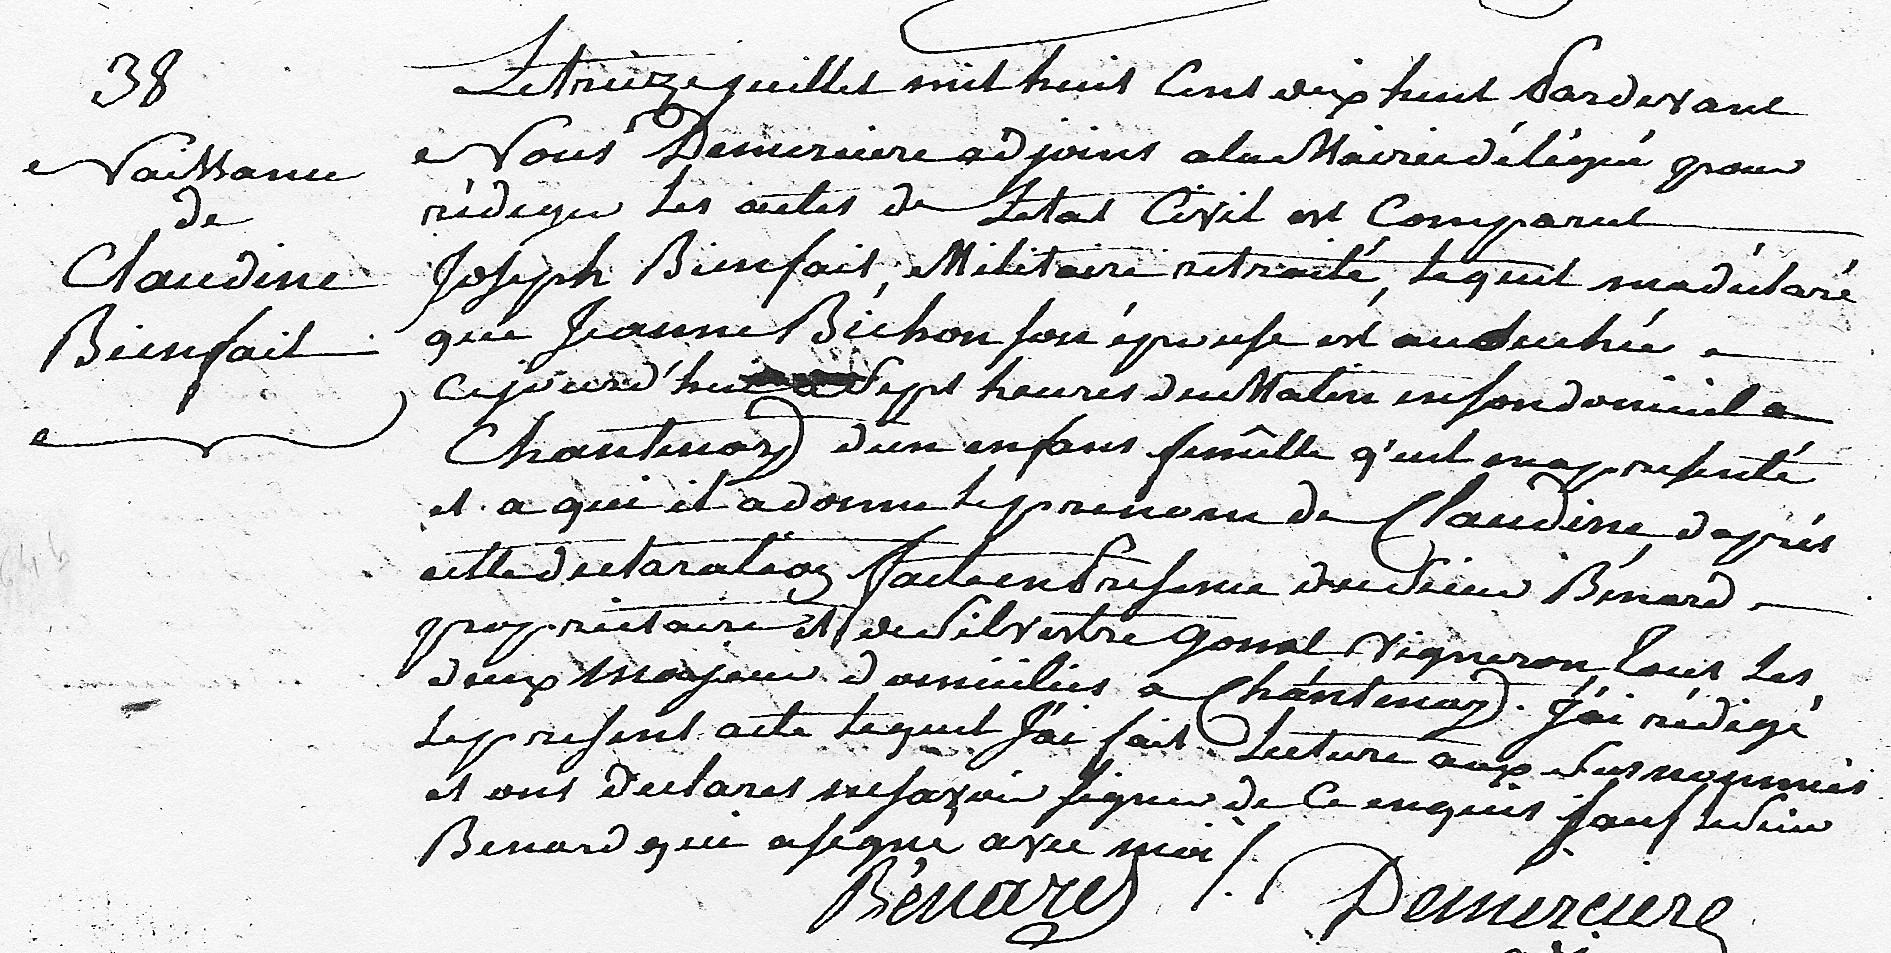 38
Naissance
de
Claudine
Bienfait
Le treize juillet mil huit Cent dix huit Pardevant
Nous Demerciere adjoint a la Mairie délégué pour
rédiger Les actes de Letat Civil est Comparut
Joseph Bienfait, Militaire retraité, lequel ma déclaré
que Jeanne Bichon son épouse est accouchée
cejourd'hui a Sept heures du Matin en son domicile a
Chantenay d'un enfant femelle q'uil ma presenté
et a qui il a donné le prenom de Claudine d'aprés
cette declaration faite en Presence du Sieur Bénard
propriétaire et de Silvestre Gonat Vigneron, tous Les
deux Majeur domicilies a Chantenay. J'ai rédigé
le present acte lequel J'ai fait Lecture aux dusnommés
et ont declarer ne savoir signer de Ce enquis sauf Le Sieur
Benard qui a signe avec moi /.
Bénard Demerciere
adj